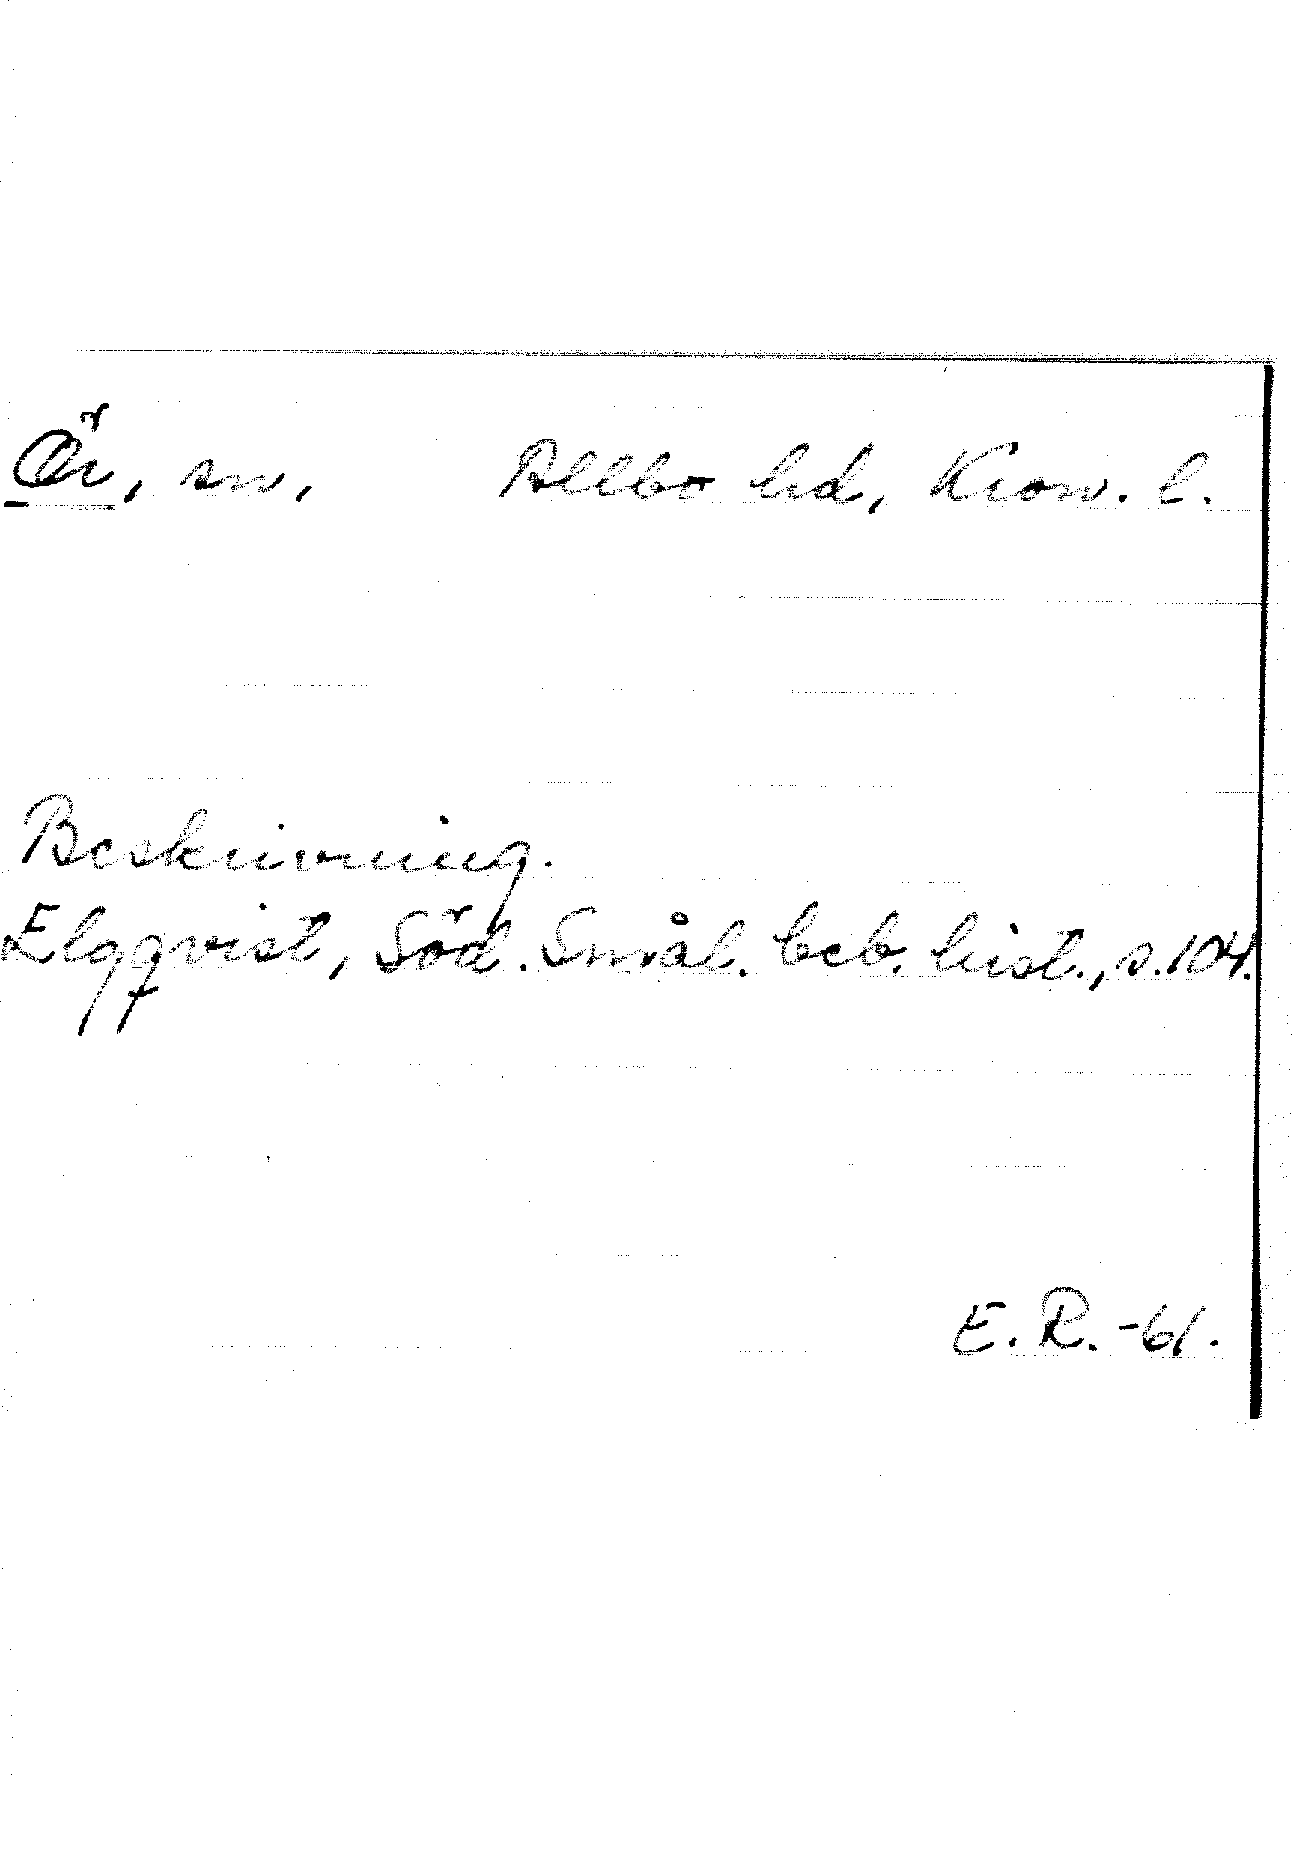 Ör, sn,   Allbo hd, Kron. l.
Beskrivning.
Elgqvist, Söd. Smål. beb. hist., s. 104.
E. R. -61.